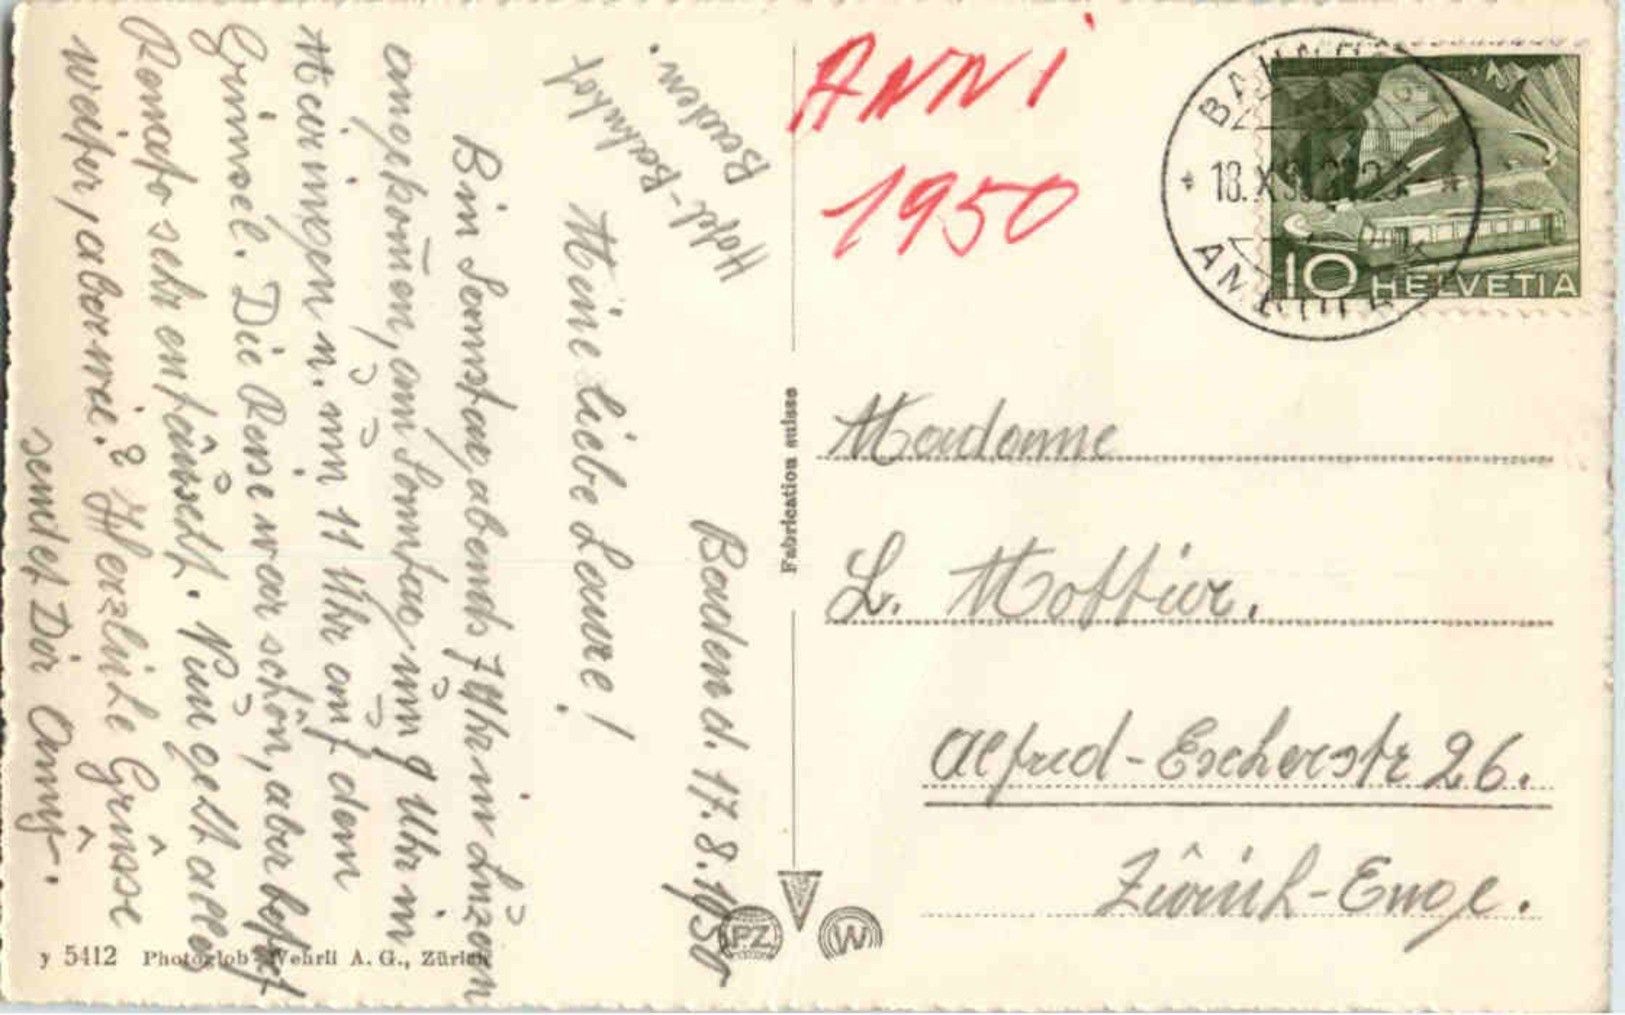 Hotel-Bahnhof
Baden.
Baden d. 17.8.1950
Meine liebe Laure!
Bin Samstag abends 7 Uhr in Luzern
angekom̄en, am Sonntag um 9 Uhr in
Meiringen u. um 11 Uhr auf dem
Grimsel. Die Reise war schön, aber
sehr enttäuscht. Nun geht alles
weiter, aber wie? Herzliche Grüsse
sendet Dir Anny.
ANNI
1950
18.X.50
10 HELVETIA
Madame
L.
Alfred-Escherstr 26.
Zürich-Enge.
Fabrication suisse
PZ
W
y 5412 Photoglob-Wehrli A. G., Zürich